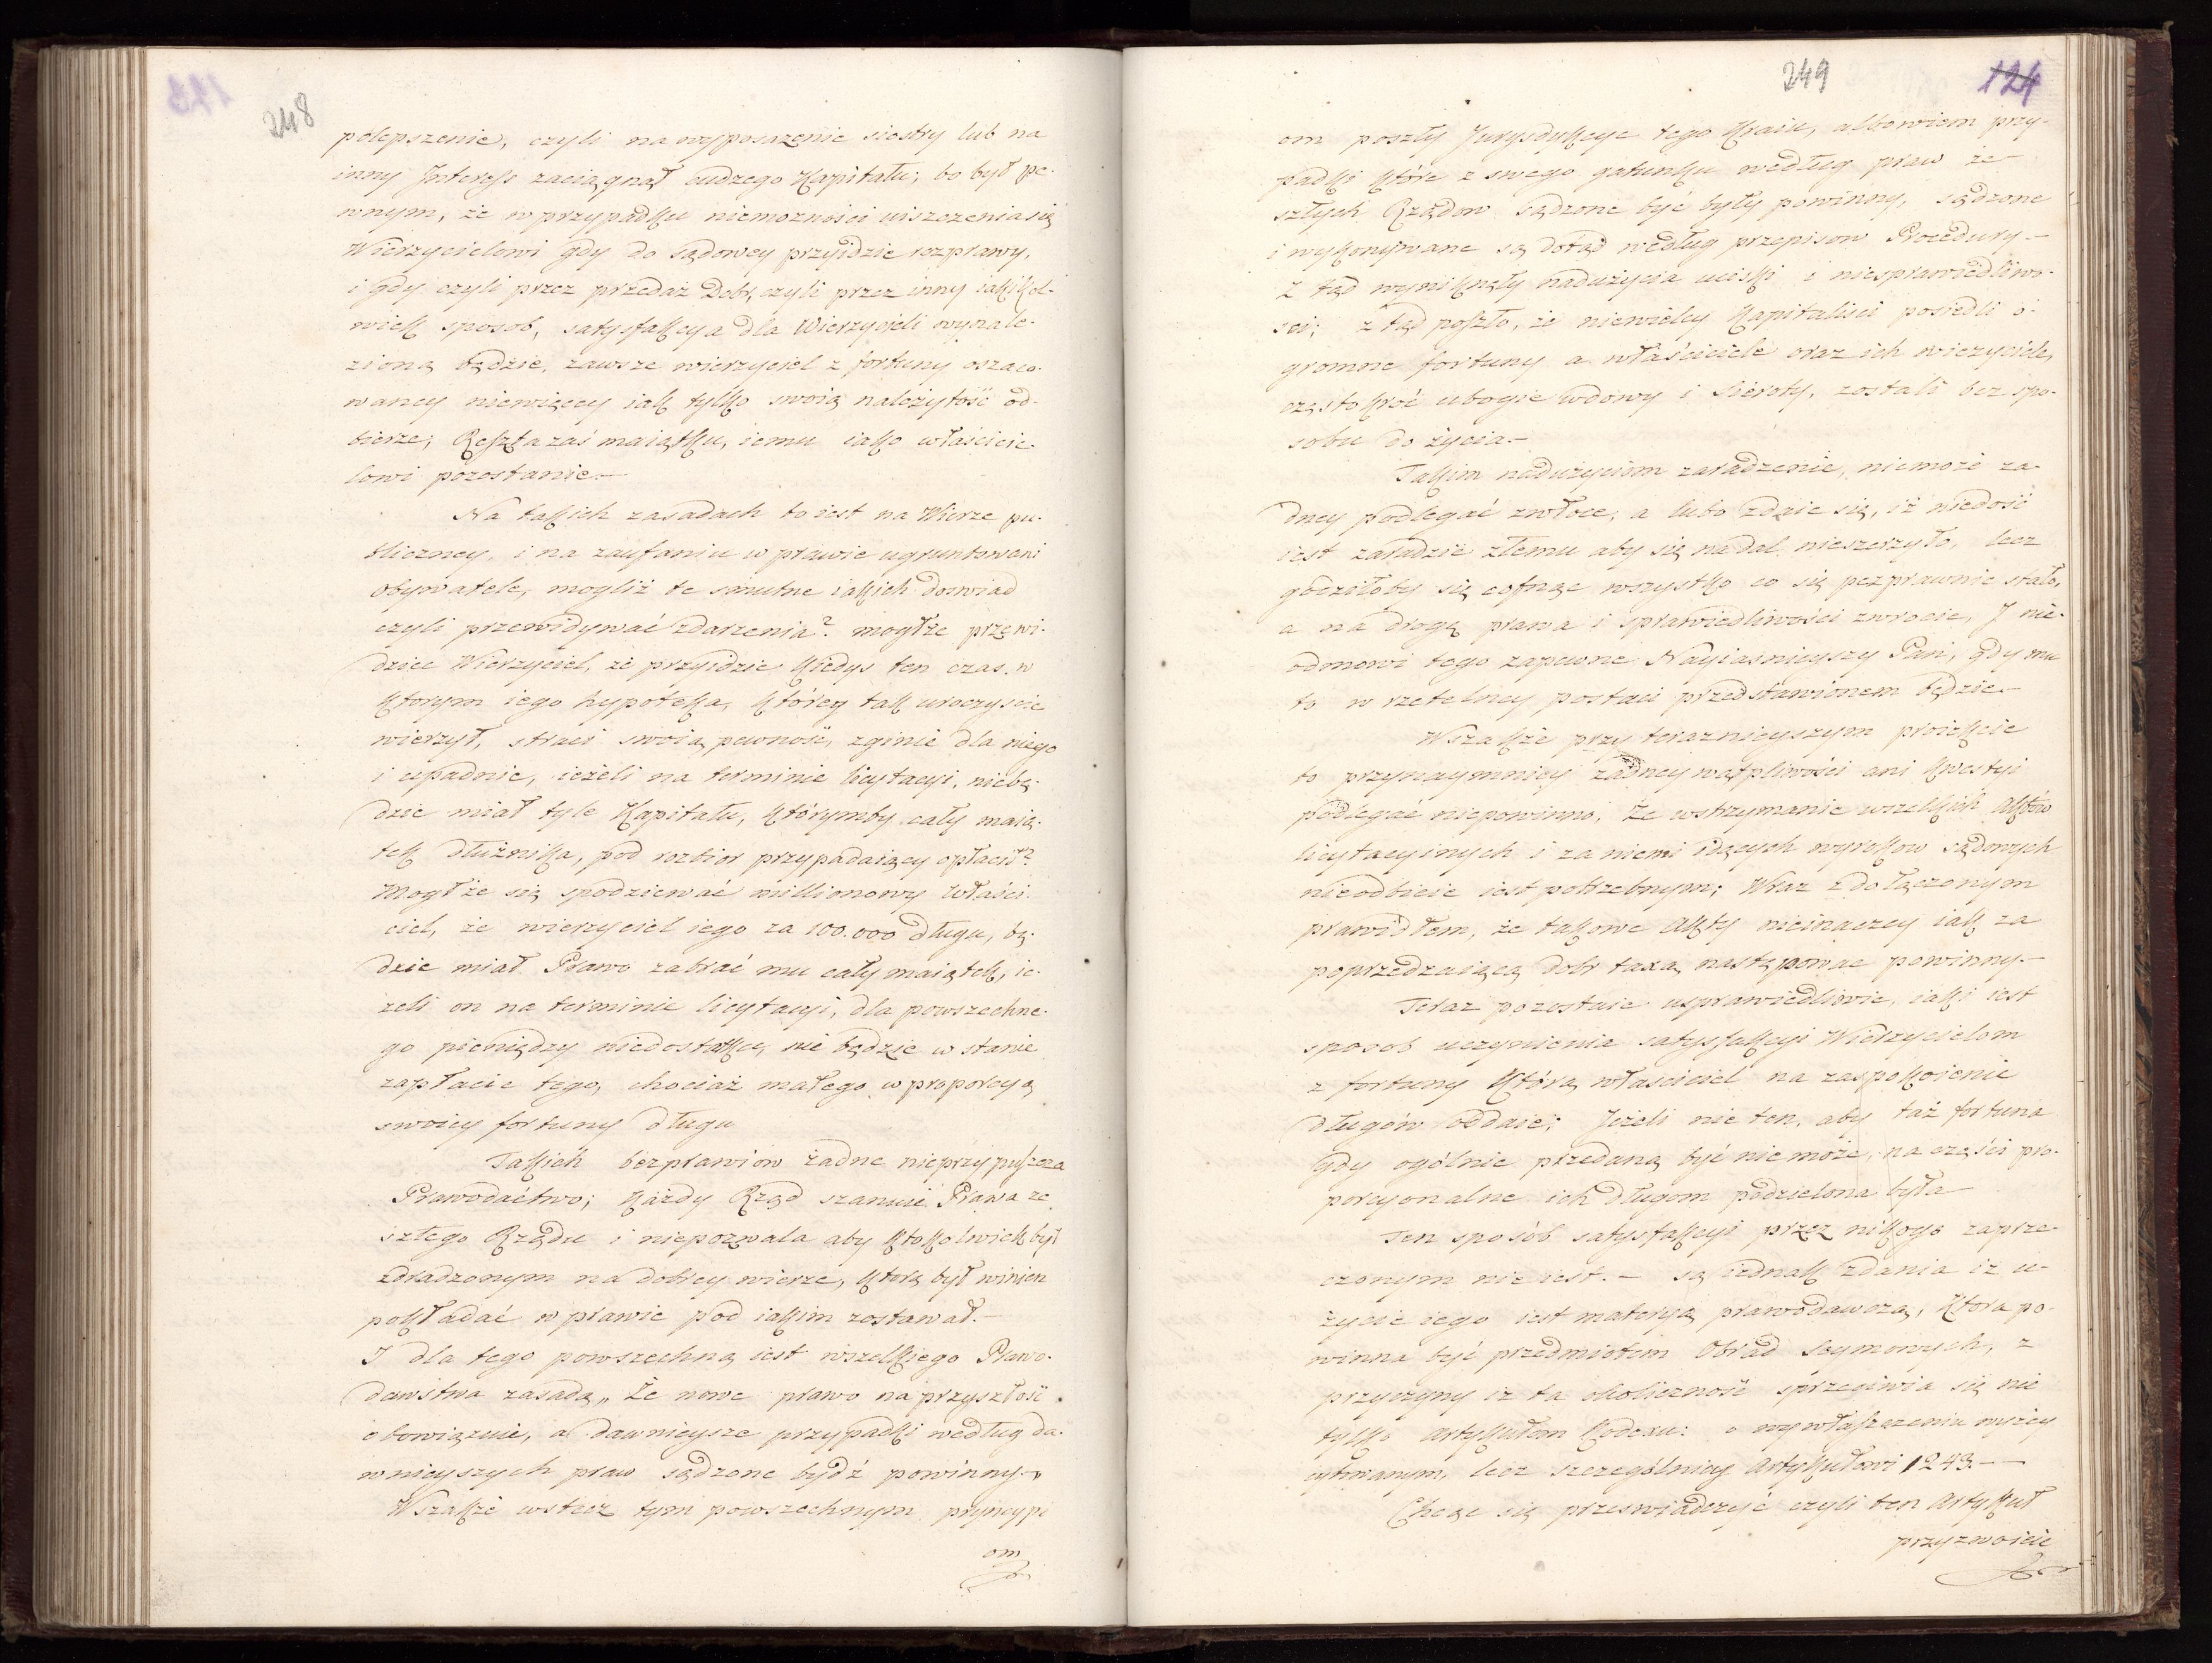 248
polepszenie, czyli na wyposażenie siostry lub na
inny Interess zaciągnął cudzego Kapitału; bo był pe-
wnym, że w przypadku niemożności uiszczenia się
Wierzycielowi gdy do sądowey przyidzie rozprawy,
i gdy czyli przez przedaż Dobr, czyli przez inny iakikol-
wiek sposob, satysfakcya dla Wierzycieli wynale-
zioną będzie, zawsze wierzyciel z fortuny oszaco-
waney niewięcey iak tylko swoią należytość od-
bierze; Reszta zaś maiątku, iemu iako właścicie-
lowi pozostanie.—
Na takich zasadach to iest na Wierze pu-
bliczney, i na zaufaniu w prawie ugruntowani
Obywatele, mogliż te smutne iakich doswiad
czyli przewidywać zdarzenia? mogłże przewi-
dzieć Wierzyciel, że przyidzie kiedys ten czas, w
ktorym iego hypoteka, którey tak uroczyscie
wierzył, straci swoią pewność, zginie dla niego
i upadnie, ieżeli na terminie licytacyi, niebę-
dzie miał tyle Kapitału, którymby cały maią-
tek dłużnika, pod rozbior przypadaiący opłacił?
Mogłże się spodziewać millionowy Właści-
ciel, że wierzyciel iego za 100.000 długu, bę-
dzie miał Prawo zabrać mu cały maiątek, ie-
żeli on na terminie licytacyi, dla powszechne-
go pieniędzy niedostatku, nie będzie w stanie
zapłacić tego, chociaż małego w proporcyą
swoiey fortuny długu
Takich bezprawiow żadne nieprzypuszcza
Prawodactwo; każdy Rząd szanuie Prawa ze
szłego Rządu i niepozwala aby ktokolwiek był
zdradzonym na dobrey wierze, ktorą był winien
pokładać w prawie pod iakim zostawał.—
I dla tego powszechną iest wszelkiego Prawo-
dawstwa zasadą „Że nowe prawo na przyszłość
obowiązuie, a dawnieysze przypadki według da-
wnieyszych praw sądzone bydź powinny„
Wszakże wstecz tym powszechnym pryncypi
om
249
124
om poszły Jurysdykcye tego Kraiu, albowiem przy-
padki które z swego gatunku według praw ze-
szłych Rządow sądzone być były powinny, sądzone
i wykonywane są dotąd według przepisow Procedury.—
Z tąd wyniknęły nadużycia uciski i niesprawiedliwo-
ści; z tąd poszło, że niewielcy Kapitalisci posiedli o-
gromne fortuny a właściciele oraz ich wierzyciele,
częstokroć ubogie wdowy i Sieroty, zostali bez spo-
sobu do życia.—
Takim nadużyciom zaradzenie, niemoże ża-
dney podlegać zwłoce, a lubo zdaie się, iż niedość
iest zaradzić złemu aby się nadal nieszerzyło, lecz
godziłoby się cofnąc wszystko co się bezprawnie stało,
a na drogę prawa i sprawiedliwości zwrocić, I nie-
odmowi tego zapewne Nayiasnieyszy Pan, gdy mu
to w rzetelney postaci przedstawionem będzie.—
Wszakże przy teraznieyszym proiekcie
to przynaymniey żadney wątpliwości ani kwestyi
podlegać niepowinno, Że wstrzymanie wszelkich Aktów
licytacyinych i za niemi idących wyrokow sądowych
nieodbicie iest potrzebnym; Wraz z dołączonym
prawidłem, że takowe Akty nieinaczey iak za
poprzedzaiącą dobr taxą następowac powinny.—
Teraz pozostaie usprawiedliwić, iaki iest
sposob uczynienia satysfakcyi Wierzycielom
z fortuny którą własciciel na zaspokoienie
długów oddaie; Jeżeli nie ten, aby taż fortuna
gdy ogólnie przedaną być nie może, na części pro-
porcyonalne ich długom podzielona była
Ten sposób satysfakcyi przez nikogo zaprze-
czonym nie iest.— są iednak zdania iż u-
życie iego iest materyą prawodawczą, ktora po-
winna być przedmiotem Obrad Seymowych, z
przyczyny iż ta okoliczność sprzeciwia się nie
tylko Artykułom Kodexu: o wywłaszczeniu wyżey
cytowanym, lecz szczególniey Artykułowi 1243.—
Chcąc się przeswiadczyć czyli ten Artykuł
przyzwoicie